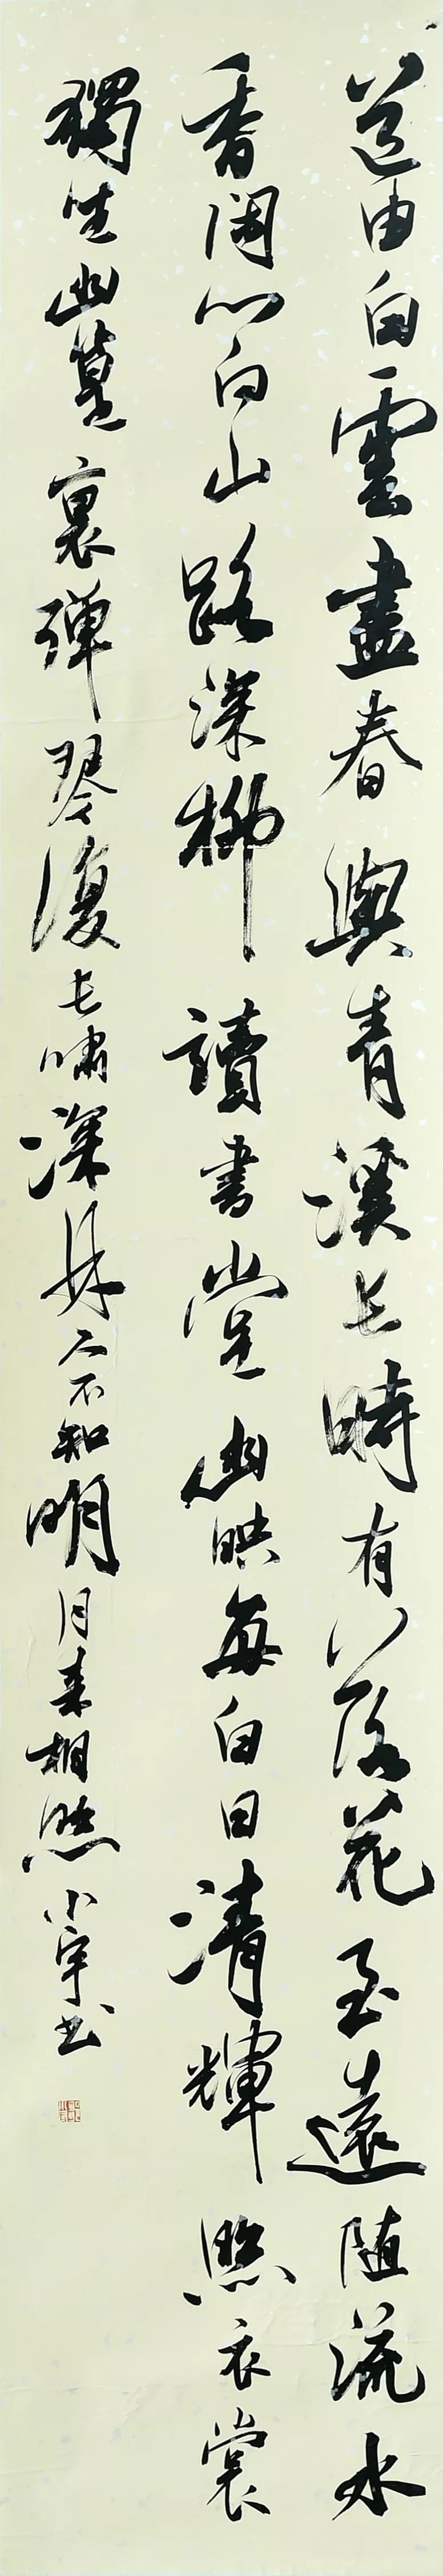 道由白雲盡春與青溪长時有落花至遠随流水
香閑门向山路深柳讀書堂幽映每白日清輝照衣裳
獨坐幽篁裏弹琴復长嘯深林人不知明月来相照小宇书